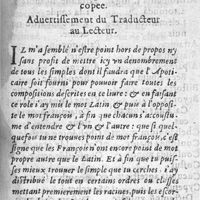 copee.
Aduertissement du Traducteur
au Lecteur.
IL m'a semblé n'estre point hors de propos ny
sans profit de mettre icy vn denombrement
de tous les simples dont il faudra que l'Apoti-
caire soit fourni pour pouuoir faire toutes les
compositions descrites en ce liure: & en faisant
ce role i'ay mis le mot Latin & puis à l'opposi-
te le mot françois, à fin que chacun s'accoustu-
me d'entendre & l'vn & l'autre: que si quel-
quefois tu ne trouues point de mot françois, c'est
signe que les François n'ont encore point de mot
propre autre que le Latin. Et à fin que tu puis-
ses mieux trouuer le simple que tu cerches: i'ay
distribué le tout en certains ordres ou classes
mettant premierement les racines, puis les escor-